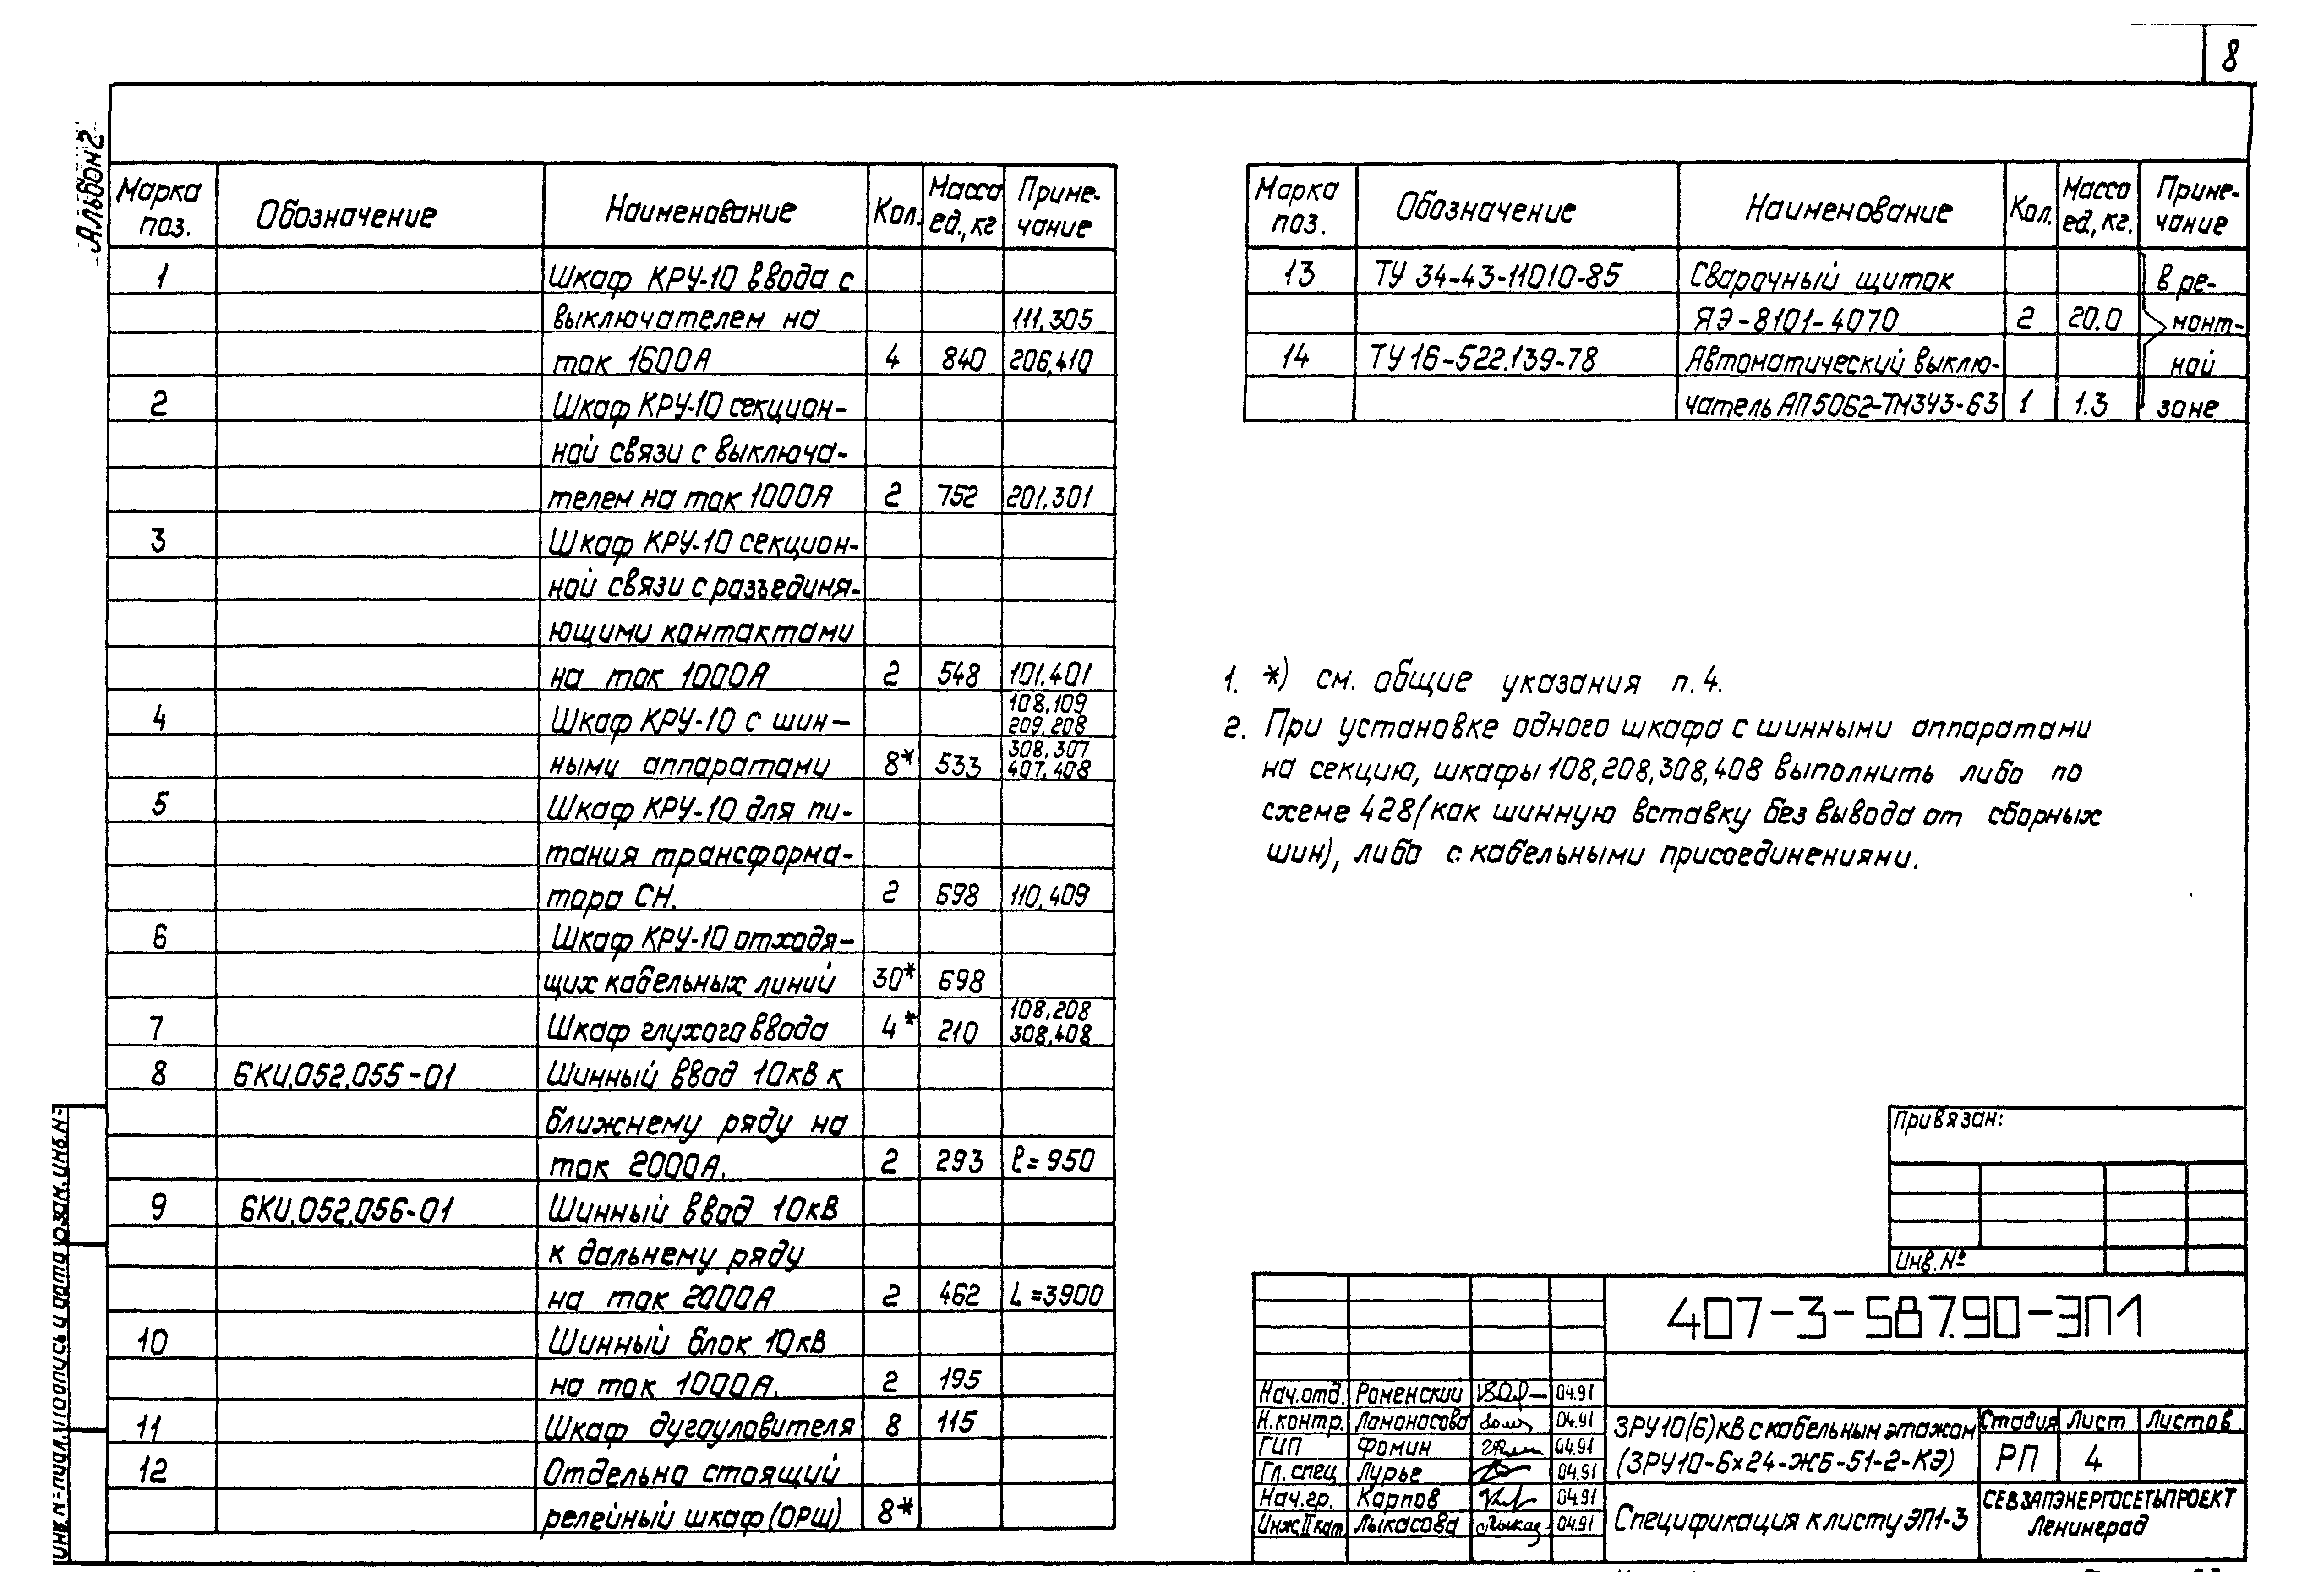 8
Альбом 2
Марка поз. Обозначение Наименование Кол. Масса ед., кг Приме- чание
1 Шкаф КРУ-10 ввода с
выключателем на 111,305
ток 1600А 4 840 206,410
2 Шкаф КРУ-10 секцион-
ной связи с выключа-
телем на ток 1000А 2 752 201,301
3 Шкаф КРУ-10 секцион-
ной связи с разъединя-
ющими контактами
на ток 1000А 2 548 101,401
4 Шкаф КРУ-10 с шин- 108,109 209,208
ными аппаратами 8* 533 308,307 407,408
5 Шкаф КРУ-10 для пи-
тания трансформа-
тора СН. 2 698 110,409
6 Шкаф КРУ-10 отходя-
щих кабельных линий 30* 698
7 Шкаф глухого ввода 4* 210 108,208 308,408
8 6КИ.052.055-01 Шинный ввод 10кВ к
ближнему ряду на
ток 2000А. 2 293 ℓ=950
9 6КИ.052.056-01 Шинный ввод 10кВ
к дальнему ряду
на ток 2000А 2 462 L=3900
10 Шинный блок 10кВ
на ток 1000А. 2 195
11 Шкаф дугоуловителя 8 115
12 Отдельно стоящий
релейный шкаф (ОРШ) 8*
Марка поз. Обозначение Наименование Кол. Масса ед., кг. Приме- чание
13 ТУ 34-43-11010-85 Сварочный щиток в ре-
ЯЭ-8101-4070 2 20.0 монт-
14 ТУ 16-522.139-78 Автоматический выклю- ной
чатель АП5062-ТМ3У3-63 1 1.3 зоне
1. *) см. общие указания п.4.
2. При установке одного шкафа с шинными аппаратами
на секцию, шкафы 108,208,308,408 выполнить либо по
схеме 428 (как шинную вставку без вывода от сборных
шин), либо с кабельными присоединениями.
Привязан:
Инв.№
407-3-587.90-ЭП1
Нач.отд. Роменский 04.91
Н.контр. Ломоносова 04.91
ГИП Фомин 04.91
Гл.спец Лурье 04.91
Нач.гр. Карпов 04.91
Инж.II кат Лыкасова 04.91
ЗРУ 10(6)кВ с кабельным этажом
(ЗРУ10-6х24-ЖБ-51-2-КЭ)
Стадия Лист Листов
РП 4
Спецификация к листу ЭП1-3
СЕВЗАПЭНЕРГОСЕТЬПРОЕКТ
Ленинград
Инв.№ подл. Подпись и дата Взам.инв.№